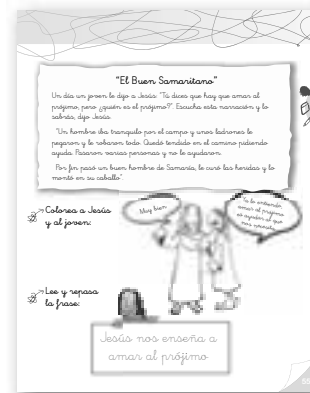 "El Buen Samaritano"
Un día un joven le dijo a Jesús: "Tú dices que hay que amar al
prójimo, pero ¿quién es el prójimo?". Escucha esta narración y lo
sabrás, dijo Jesús.
"Un hombre iba tranquilo por el campo y unos ladrones le
pegaron y le robaron todo. Quedó tendido en el camino pidiendo
ayuda. Pasaron varias personas y no le ayudaron.
Por fin pasó un buen hombre de Samaria, le curó las heridas y lo
montó en su caballo".
Muy bien
Ya lo entiendo,
amar al prójimo
es ayudar al que
nos necesita
Colorea a Jesús
y al joven:
Lee y repasa
la frase:
Jesús nos enseña a
amar al prójimo